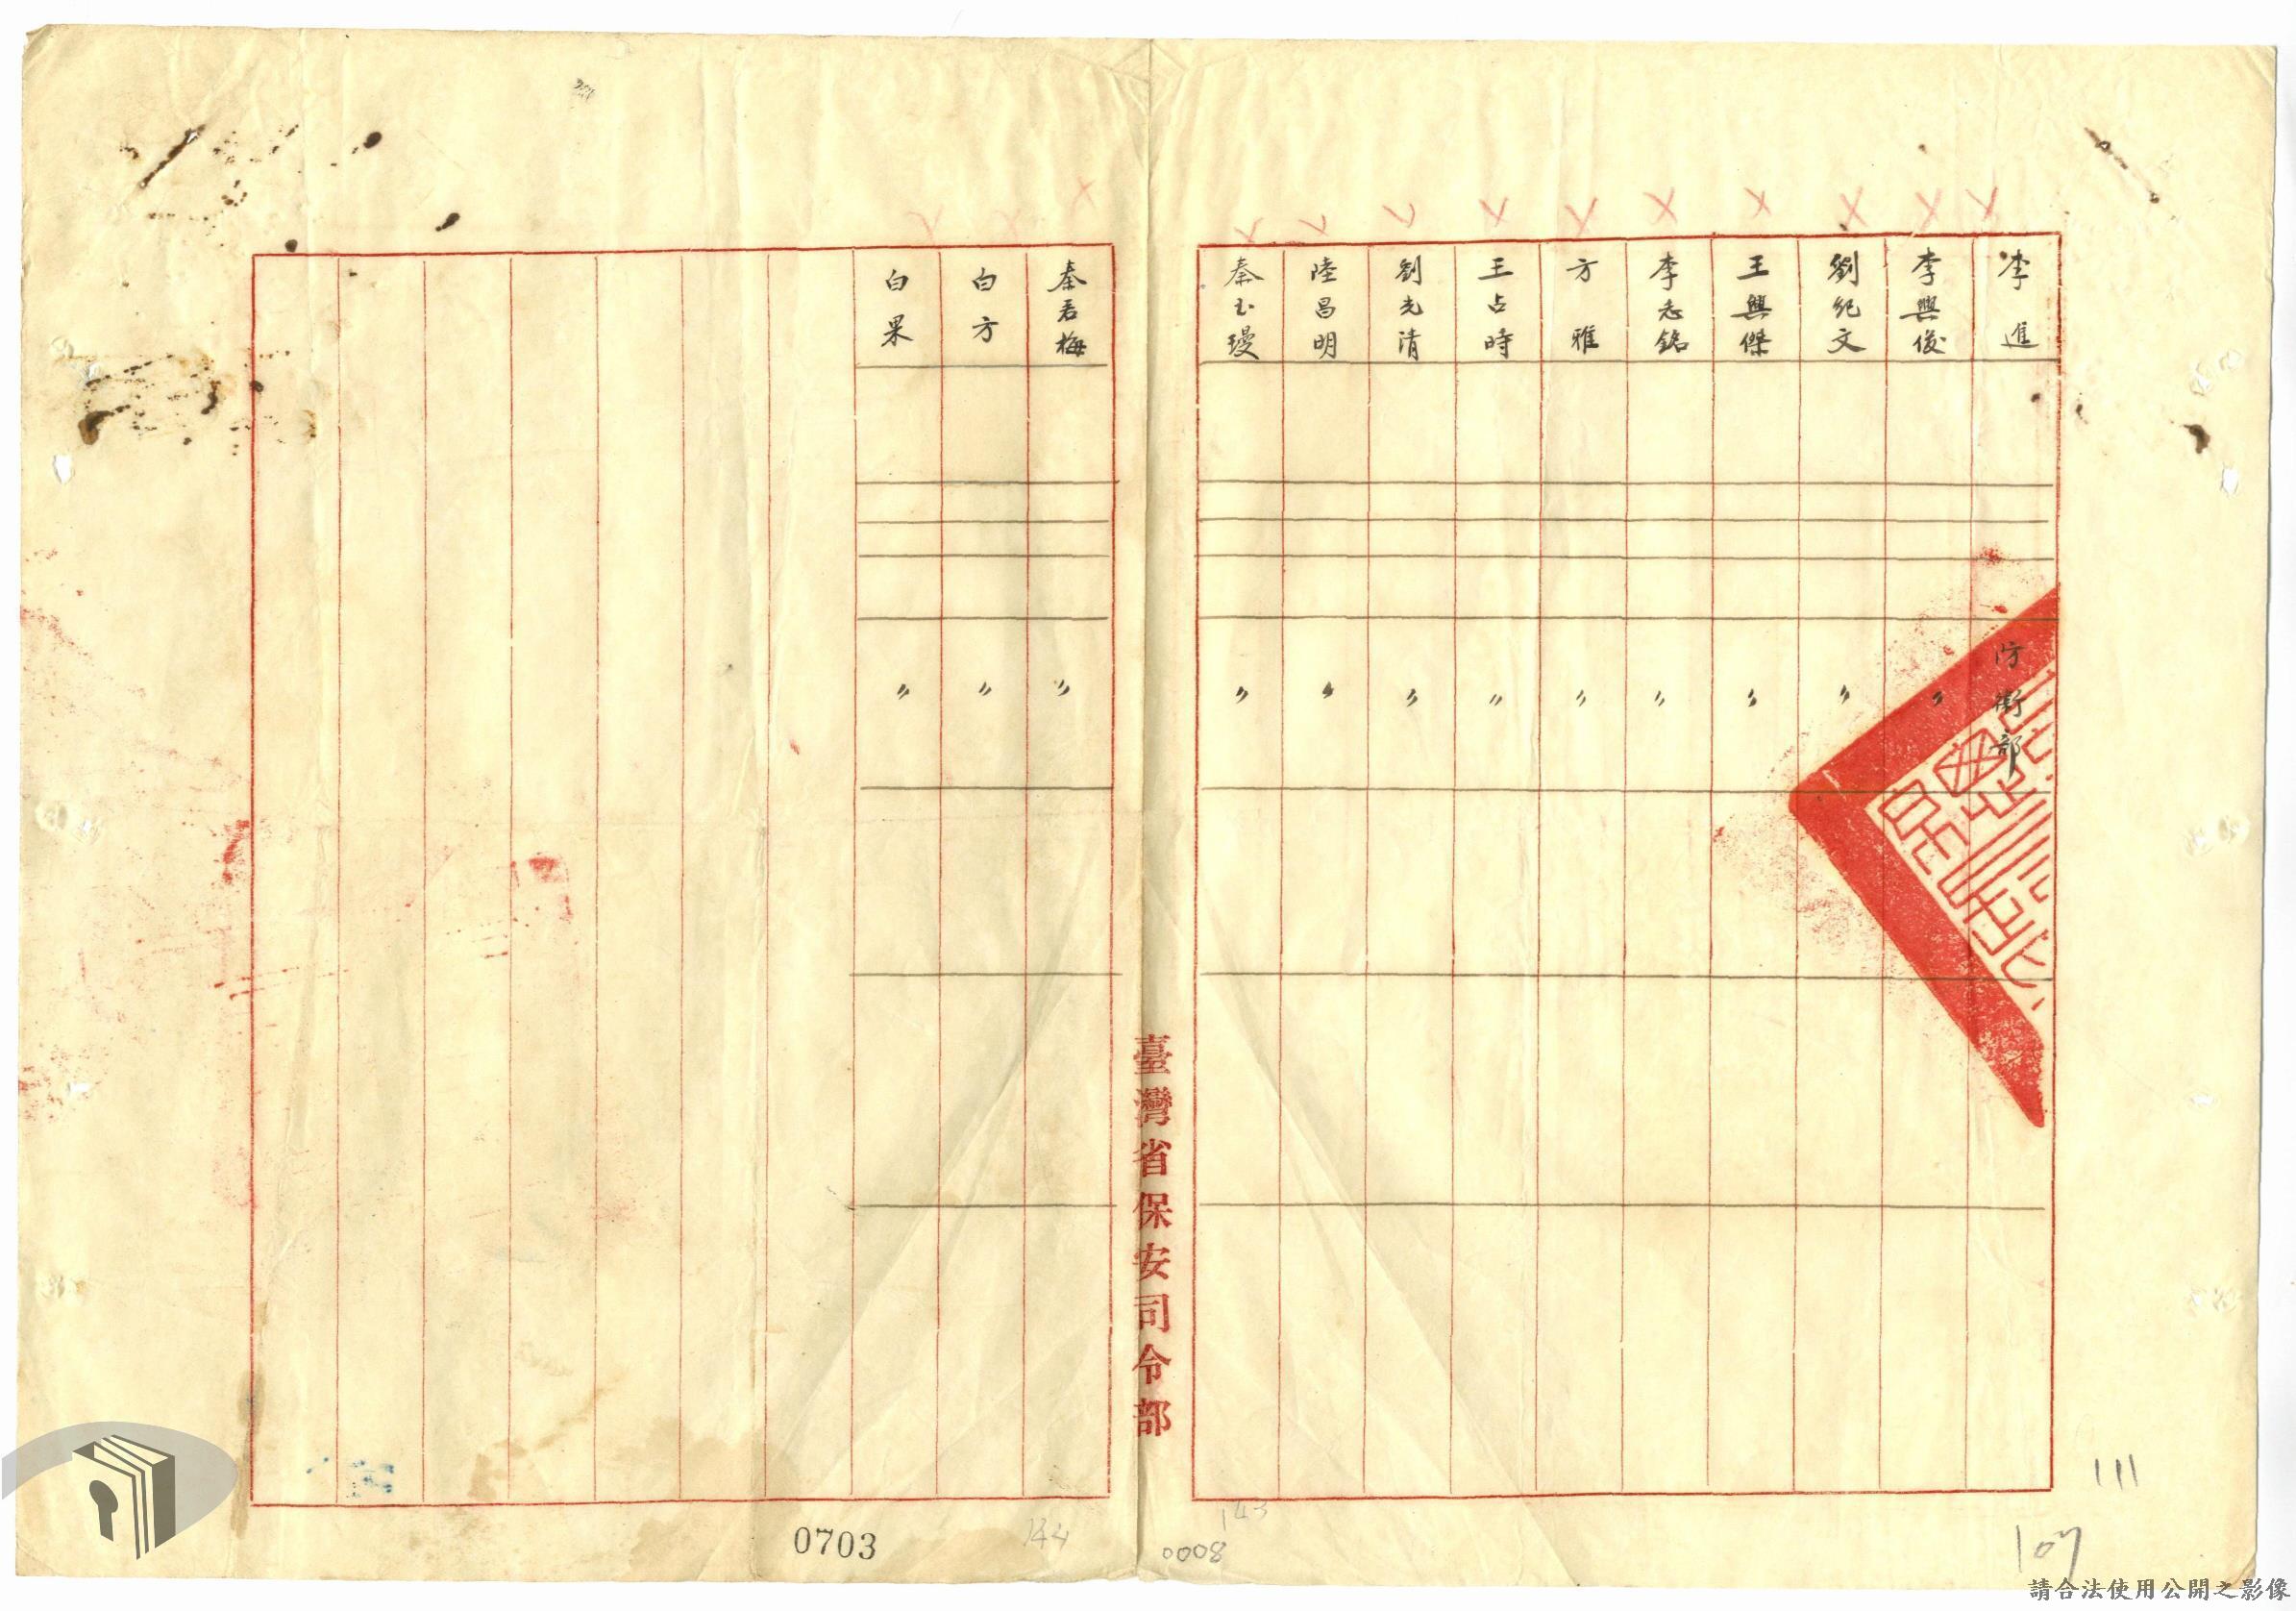 李進
防衛部
李興俊
〃
劉紀文
〃
王興傑
〃
李志銘
〃
方雅
〃
王占時
〃
劉光清
〃
陸昌明
〃
秦玉璦
〃
臺灣省保安司令部
秦若梅
〃
白方
〃
白果
〃
0703
144
143
0008
107
111
請合法使用公開之影像